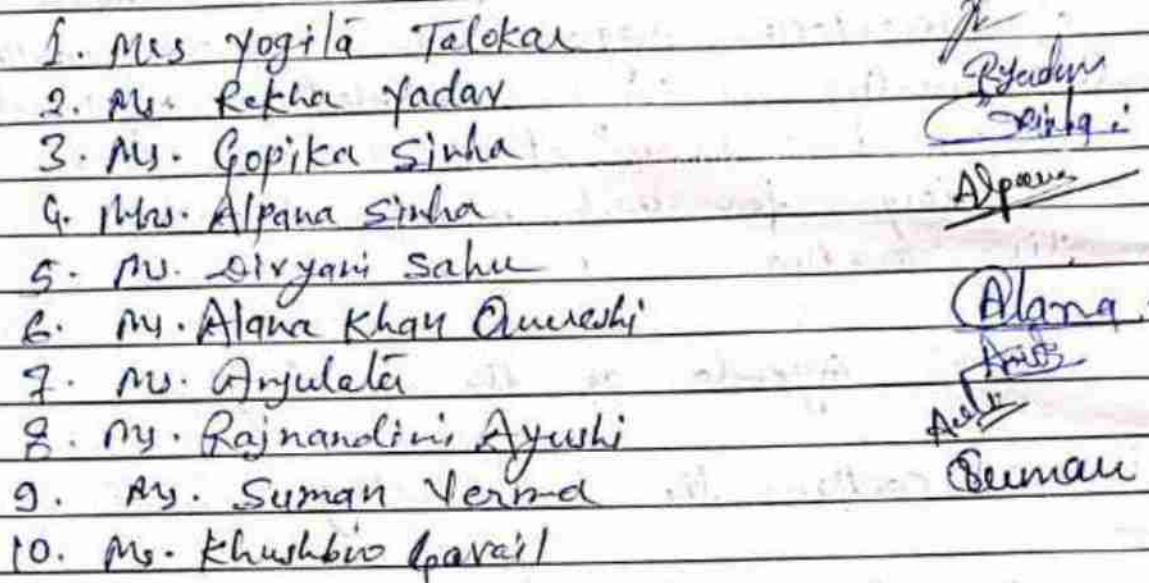 1. Mrs Yogita Talokar
2. Ms. Rekha Yadav Ryadav
3. Ms. Gopika Sinha Sinha
4. Mrs. Alpana Sinha Alpana
5. Ms. Divyani Sahu
6. Ms. Alana Khan Qureshi Alana
7. Ms. Anjulata
8. Ms. Rajnandini Ayushi
9. Ms. Suman Verma Suman
10. Ms. Khushboo